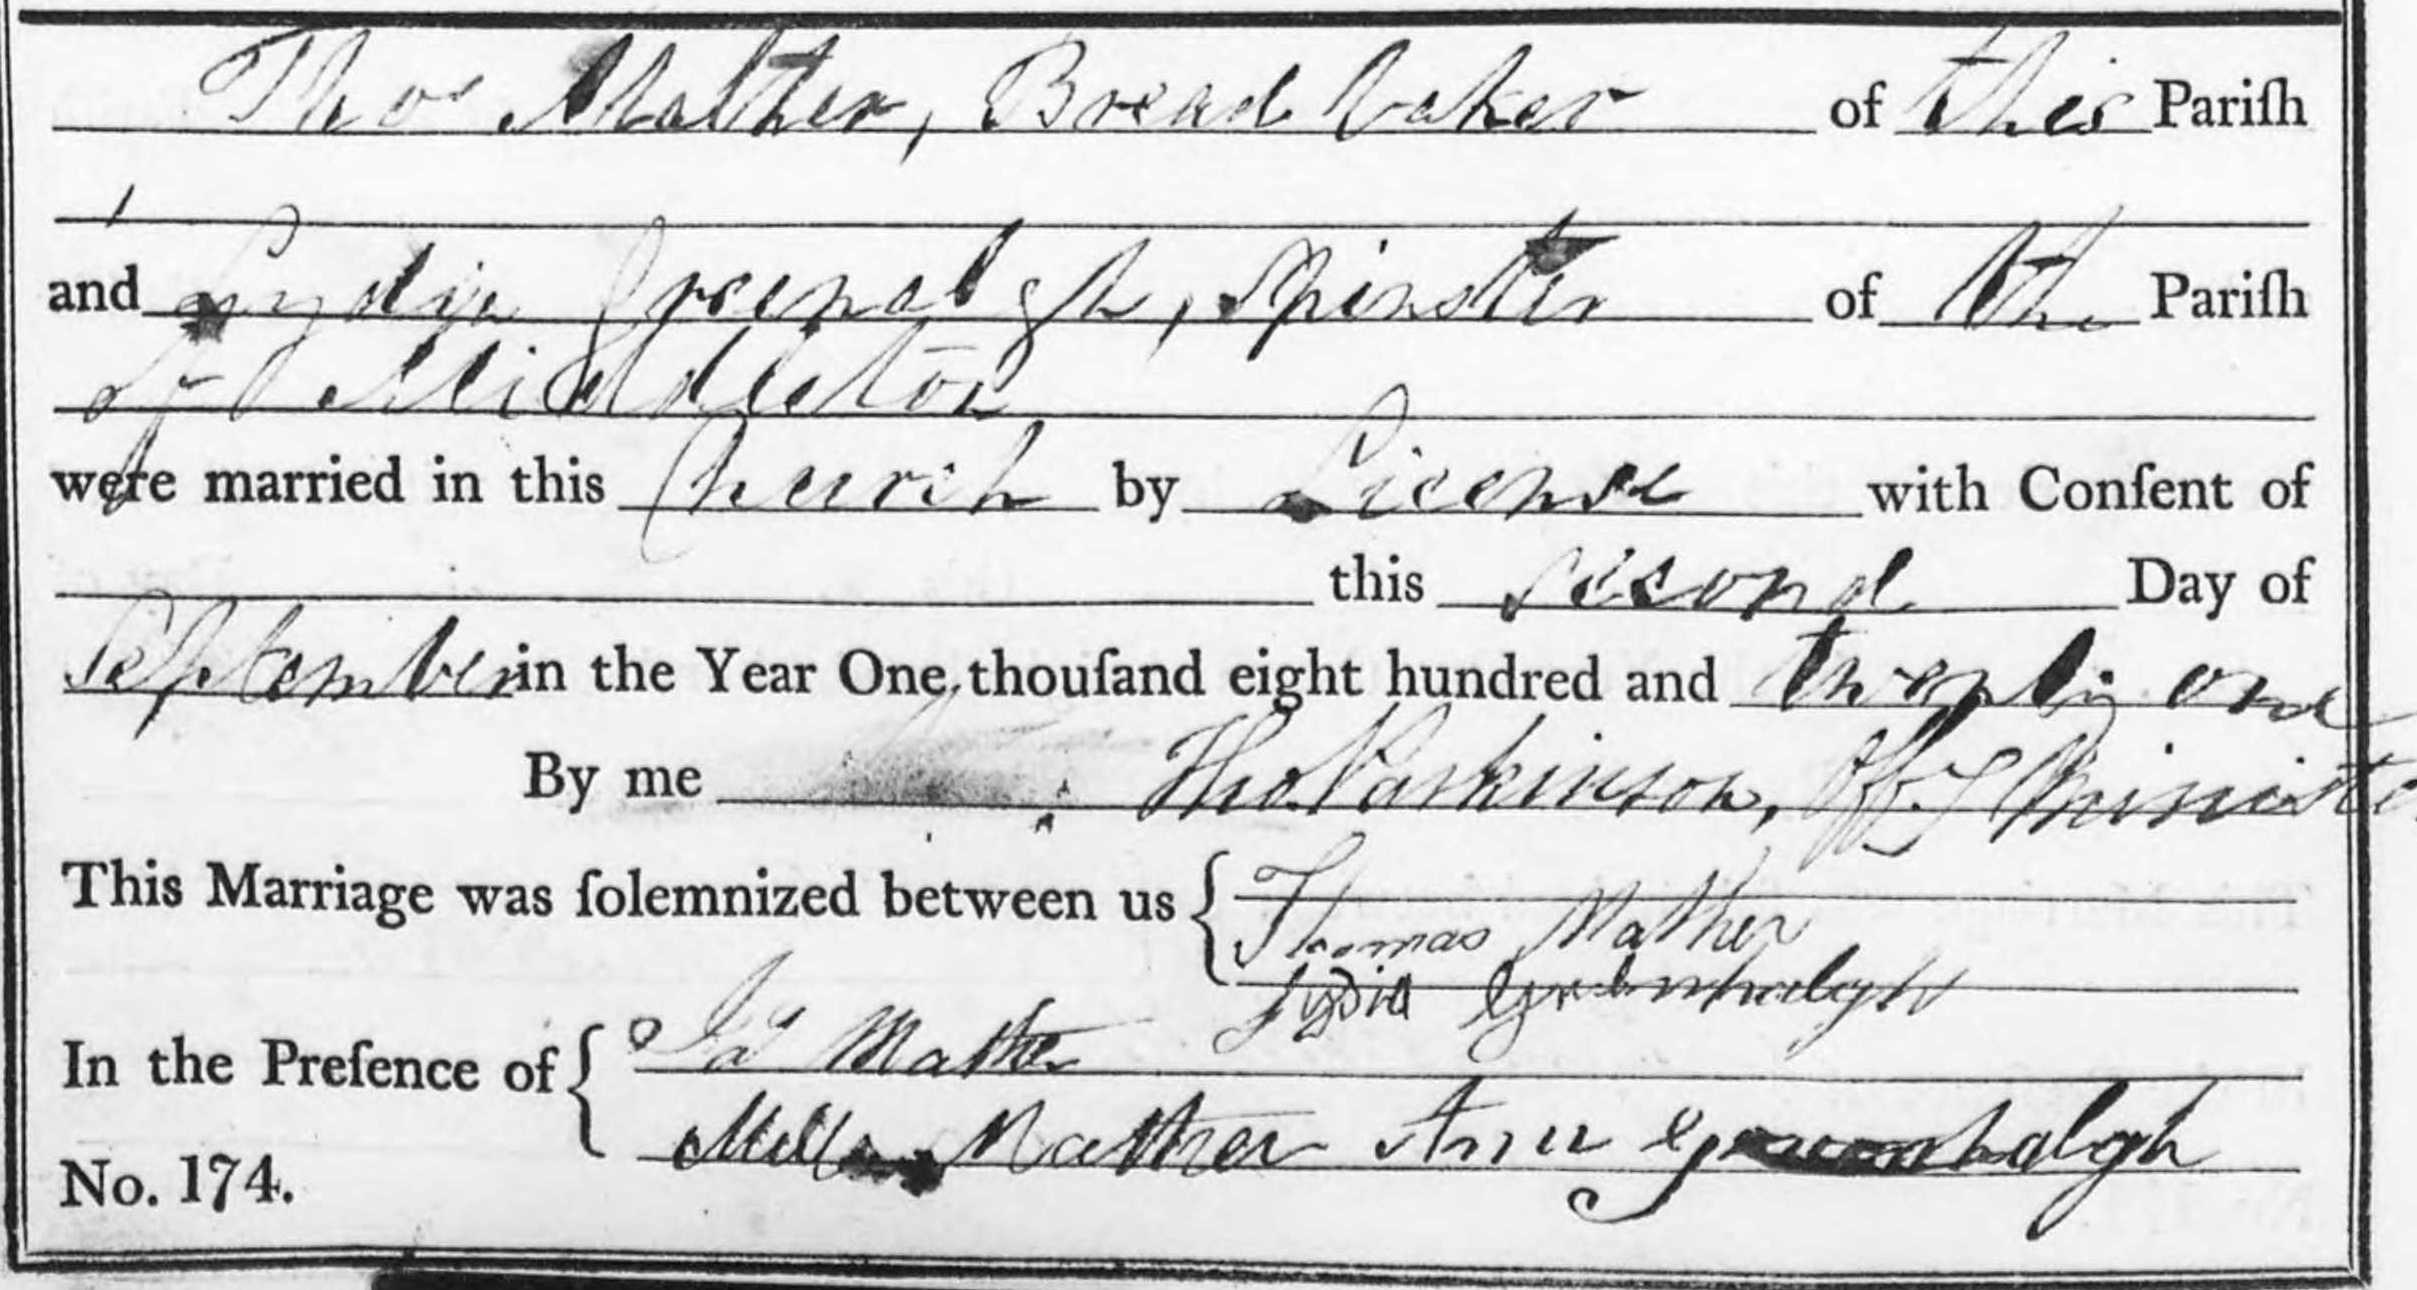 Thos Mather, Bread baker of this Pariſh
and Lydia Greenalgh, Spinster of the Pariſh
of Middleton
were married in this Church by License with Conſent of
this second Day of
September in the Year One thouſand eight hundred and twenty one
By me Tho Parkinson, Offg Minister
This Marriage was ſolemnized between us { Thomas Mather
Lydia Greenhalgh
In the Preſence of { Mather
Mather Ann Greenhalgh
No. 174.